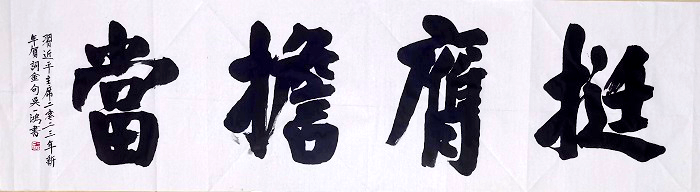 挺膺擔當
習近平主席二零二三年新
年賀詞金句吳一鴻書